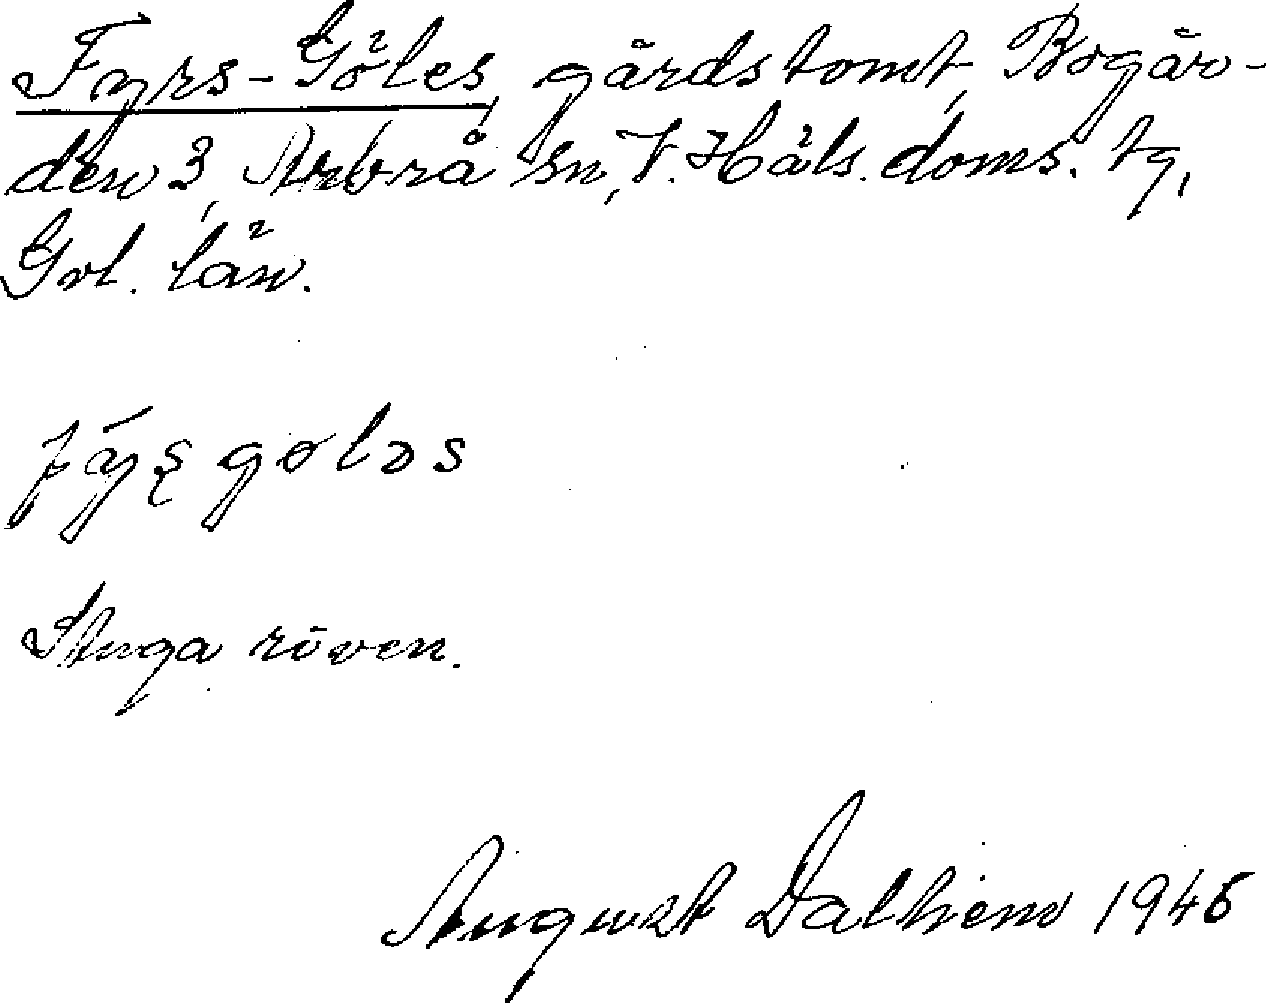 Fyrs-Göles, gårdstomt, Bogår-
den 3, Arbrå sn, V. Häls. doms. tg,
Gvl. län.
göləs
Stuga röven.
August Dalhem 1945